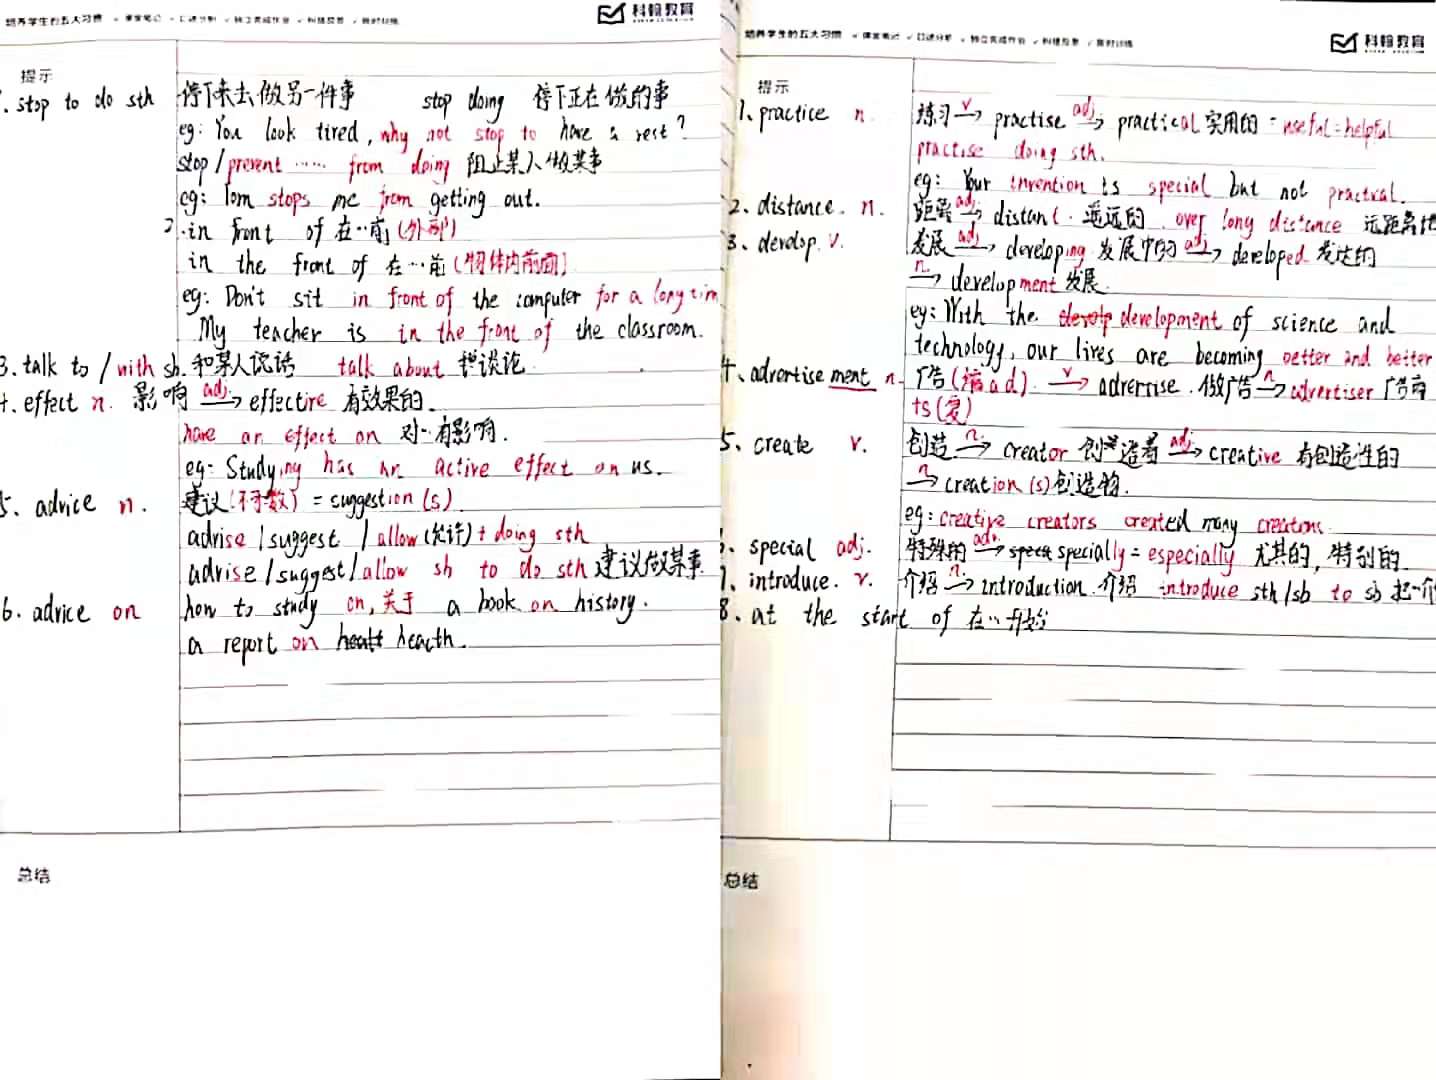 培养学生的五大习惯 ✓ 课堂笔记 ✓ 口述分析 ✓ 独立完成作业 ✓ 纠错反思 ✓ 限时训练
科翰教育
提示
1. stop to do sth 停下来去做另一件事 stop doing 停下正在做的事
eg: You look tired, why not stop to have a rest?
stop / prevent …… from doing 阻止某人做某事
eg: Tom stops me from getting out.
2. in front of 在…前(外部)
in the front of 在…前(物体内前面)
eg: Don't sit in front of the computer for a long tim
My teacher is in the front of the classroom.
3. talk to / with sb. 和某人谈话 talk about 谈论
4. effect n. 影响 adj. → effective 有效果的.
have an effect on 对…有影响.
eg: Studying has an active effect on us.
5. advice n. 建议(不可数) = suggestion (s)
advise / suggest / allow (允许) + doing sth
advise / suggest / allow sb to do sth 建议做某事
6. advice on how to study on, 关于 a book on history.
a report on heacth.
总结
培养学生的五大习惯 ✓ 课堂笔记 ✓ 口述分析 ✓ 独立完成作业 ✓ 纠错反思 ✓ 限时训练
科翰教育
提示
1. practice n. 练习 v → practise adj → practical 实用的 = useful = helpful
practise doing sth.
eg: Your invention is special but not practical.
2. distance. n. 距离 adj → distant. 遥远的 over long distance 远距离地
3. develop. v. 发展 adj → developing 发展中的 adj → developed 发达的
n → development 发展.
eg: With the development of science and
technology, our lives are becoming better and better
4. advertisement n. 广告(缩 ad). v → advertise. 做广告 n → advertiser 广告商
ts(复)
5. create v. 创造 n. → creator 创造者 adj → creative 有创造性的
n → creation (s) 创造物.
eg: creative creators created many creations.
6. special adj. 特殊的 adv. → specially = especially 尤其的, 特别的.
7. introduce. v. 介绍 n. → introduction. 介绍 introduce sth/sb to sb 把…介
8. at the start of 在…开始
总结